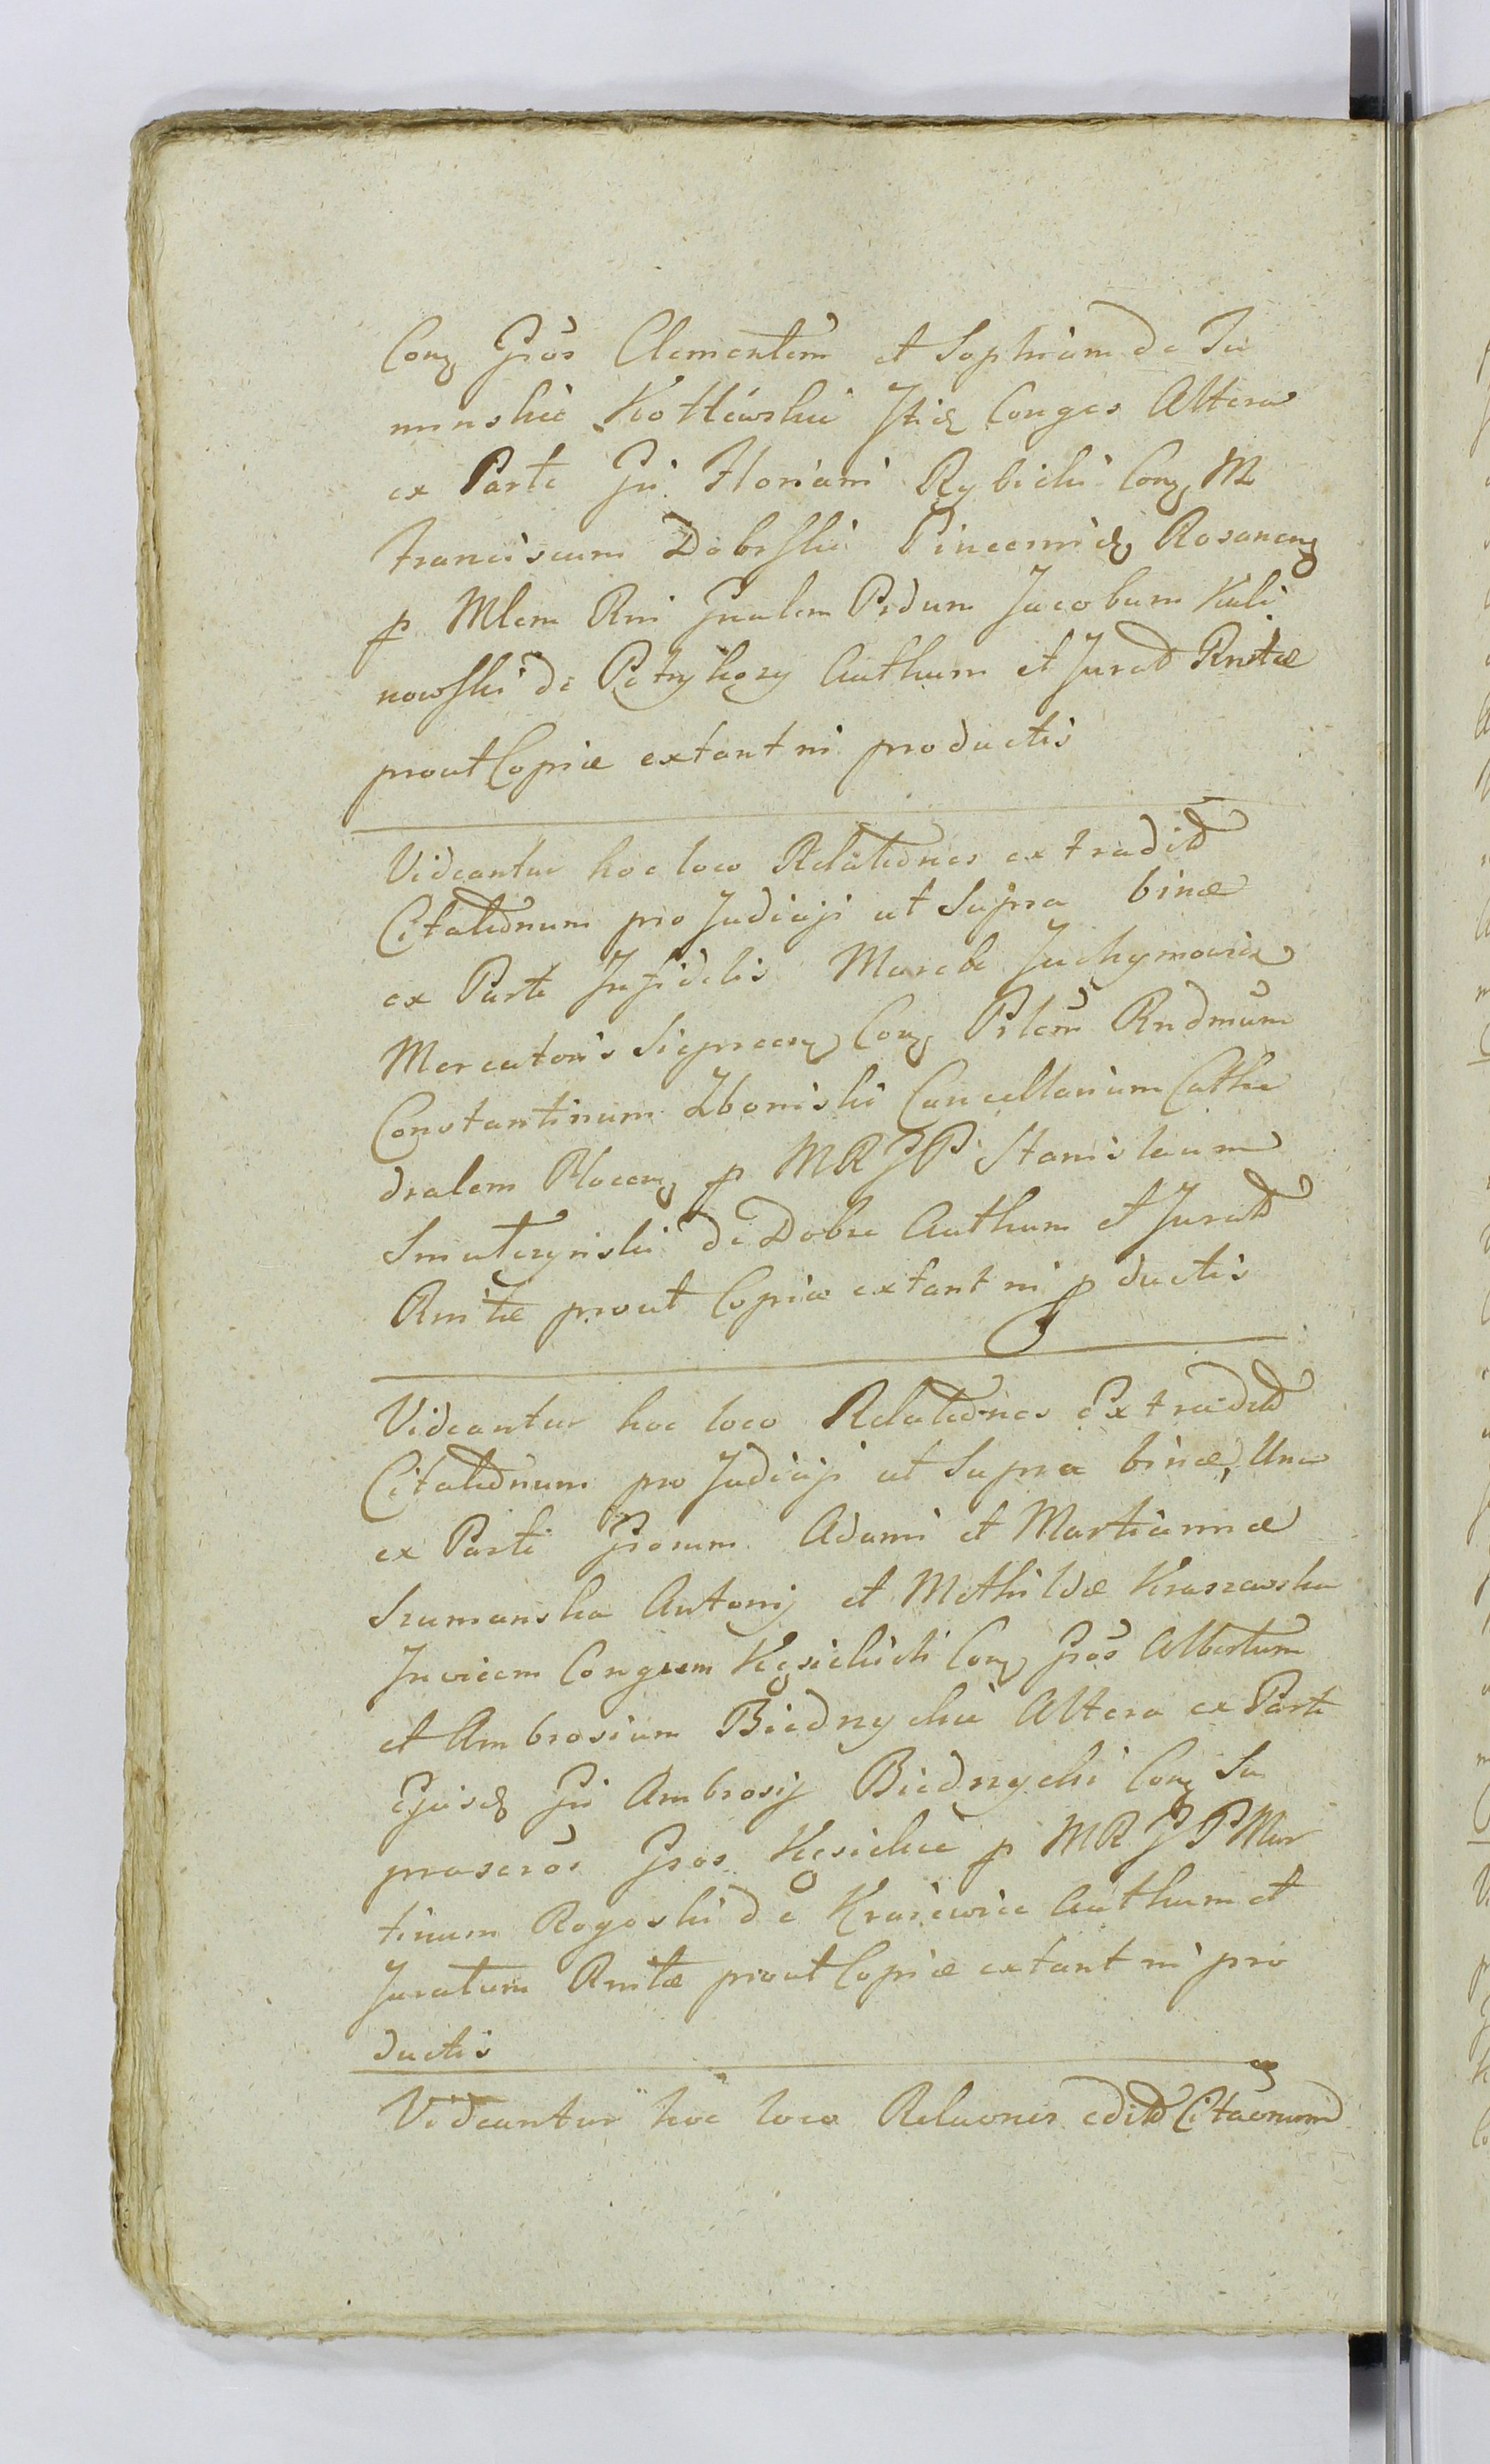 Conę Gños Clementem et Sophiam de Tu
minskie Kotłéwskie Itid Conges Altera
ex Parte Gñi Floriani Rybicki Conę M
Franciscum Dobrski Pincernid Rosanenę
p Mlem Rni Gnalem Prdum Jacobum Kali
nowski de Petrykozy Authum et Jurat Rnitæ
prout Copiæ extant ni productis
Videantur hoc loco Relationes extradit
Citationum pro Judicÿs ut Supra binæ
ex Parte Infidelis Marcka Jachymowicz
Mercatoris Sieprcenę Conę Prlem Rndmum
Constantinum Zboinski Cancellarium Cathe
dralem Plocenę p MRGP Stanislaum
Smutczynski de Dobre Authum et Jurat
Rnitæ prout Copiæ extant ni pductis
Videantur hoc loco Relationes Extradit
Citationum pro Judicÿs ut Supra binæ, Una
ex Parte Gñorum Adami et Martiannæ
Szumanska Antonÿ et Methildæ Kraszewska
Invicem Congum Kęsickich Conę Gños Albertum
et Ambrosium Biedrzyckie Altera ex Parte
Ejusd Gñi Ambrosÿ Biedrzycki Conę Su
prascros Gños Kęsickie p MRGP Mar
tinum Rogoski de Krajewice Authum et
Juratum Rnitæ prout Copiæ extant ni pro
ductis
Videantur hoc loco Relaones edit Citaonum